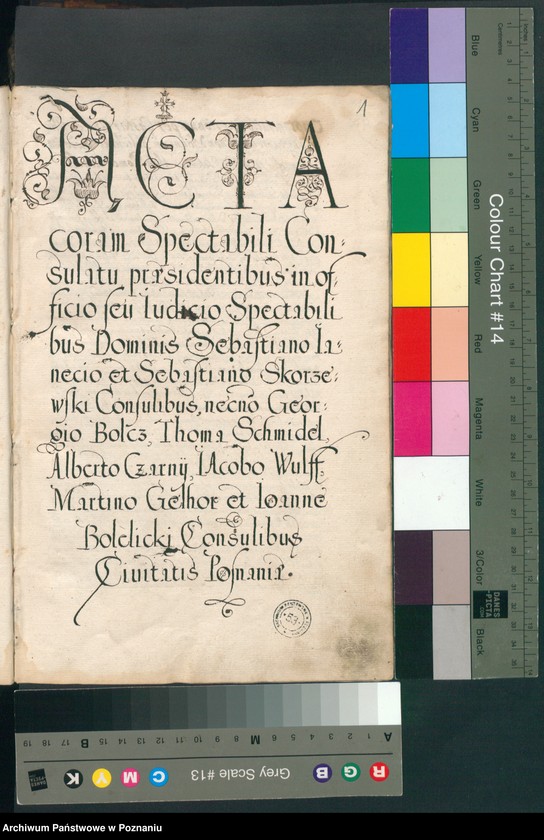 1
ACTA
coram Spectabili Con:
sulatu præsidentibus in of:
ficio seu Iudicio Spectabili
bus Dominis Sebastiano Ia:
necio et Sebastiano Skorze:
wski Consulibus, necno Geor:
gio Bolcz, Thoma Schmidel,
Alberto Czarnÿ, IAcobo Wulff,
Martino Gelhor et Ioanne
Bolelicki Consulibus
Ciuitatis Posnaniæ.
Colour Chart #14
Blue
Cyan
Green
Yellow
Red
Magenta
White
3/Color
Black
Centimetres
DANES
-PICTA
.COM
Grey Scale #13
A 1 2 3 4 5 6 M 8 9 10 11 12 13 14 15 B 17 18 19
R G B C M Y K
Archiwum Państwowe w Poznaniu